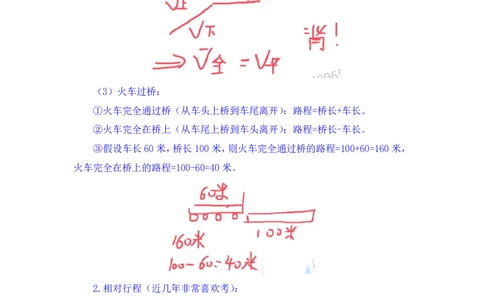 V上
V下
⇒ V全 = V平
背!
(3)火车过桥:
①火车完全通过桥(从车头上桥到车尾离开):路程=桥长+车长。
②火车完全在桥上(从车尾上桥到车头离开):路程=桥长-车长。
③假设车长60米,桥长100米,则火车完全通过桥的路程=100+60=160米,
火车完全在桥上的路程=100-60=40米。
60米
100米
160米
100-60=40米
2.相对行程(近几年非常喜欢考):